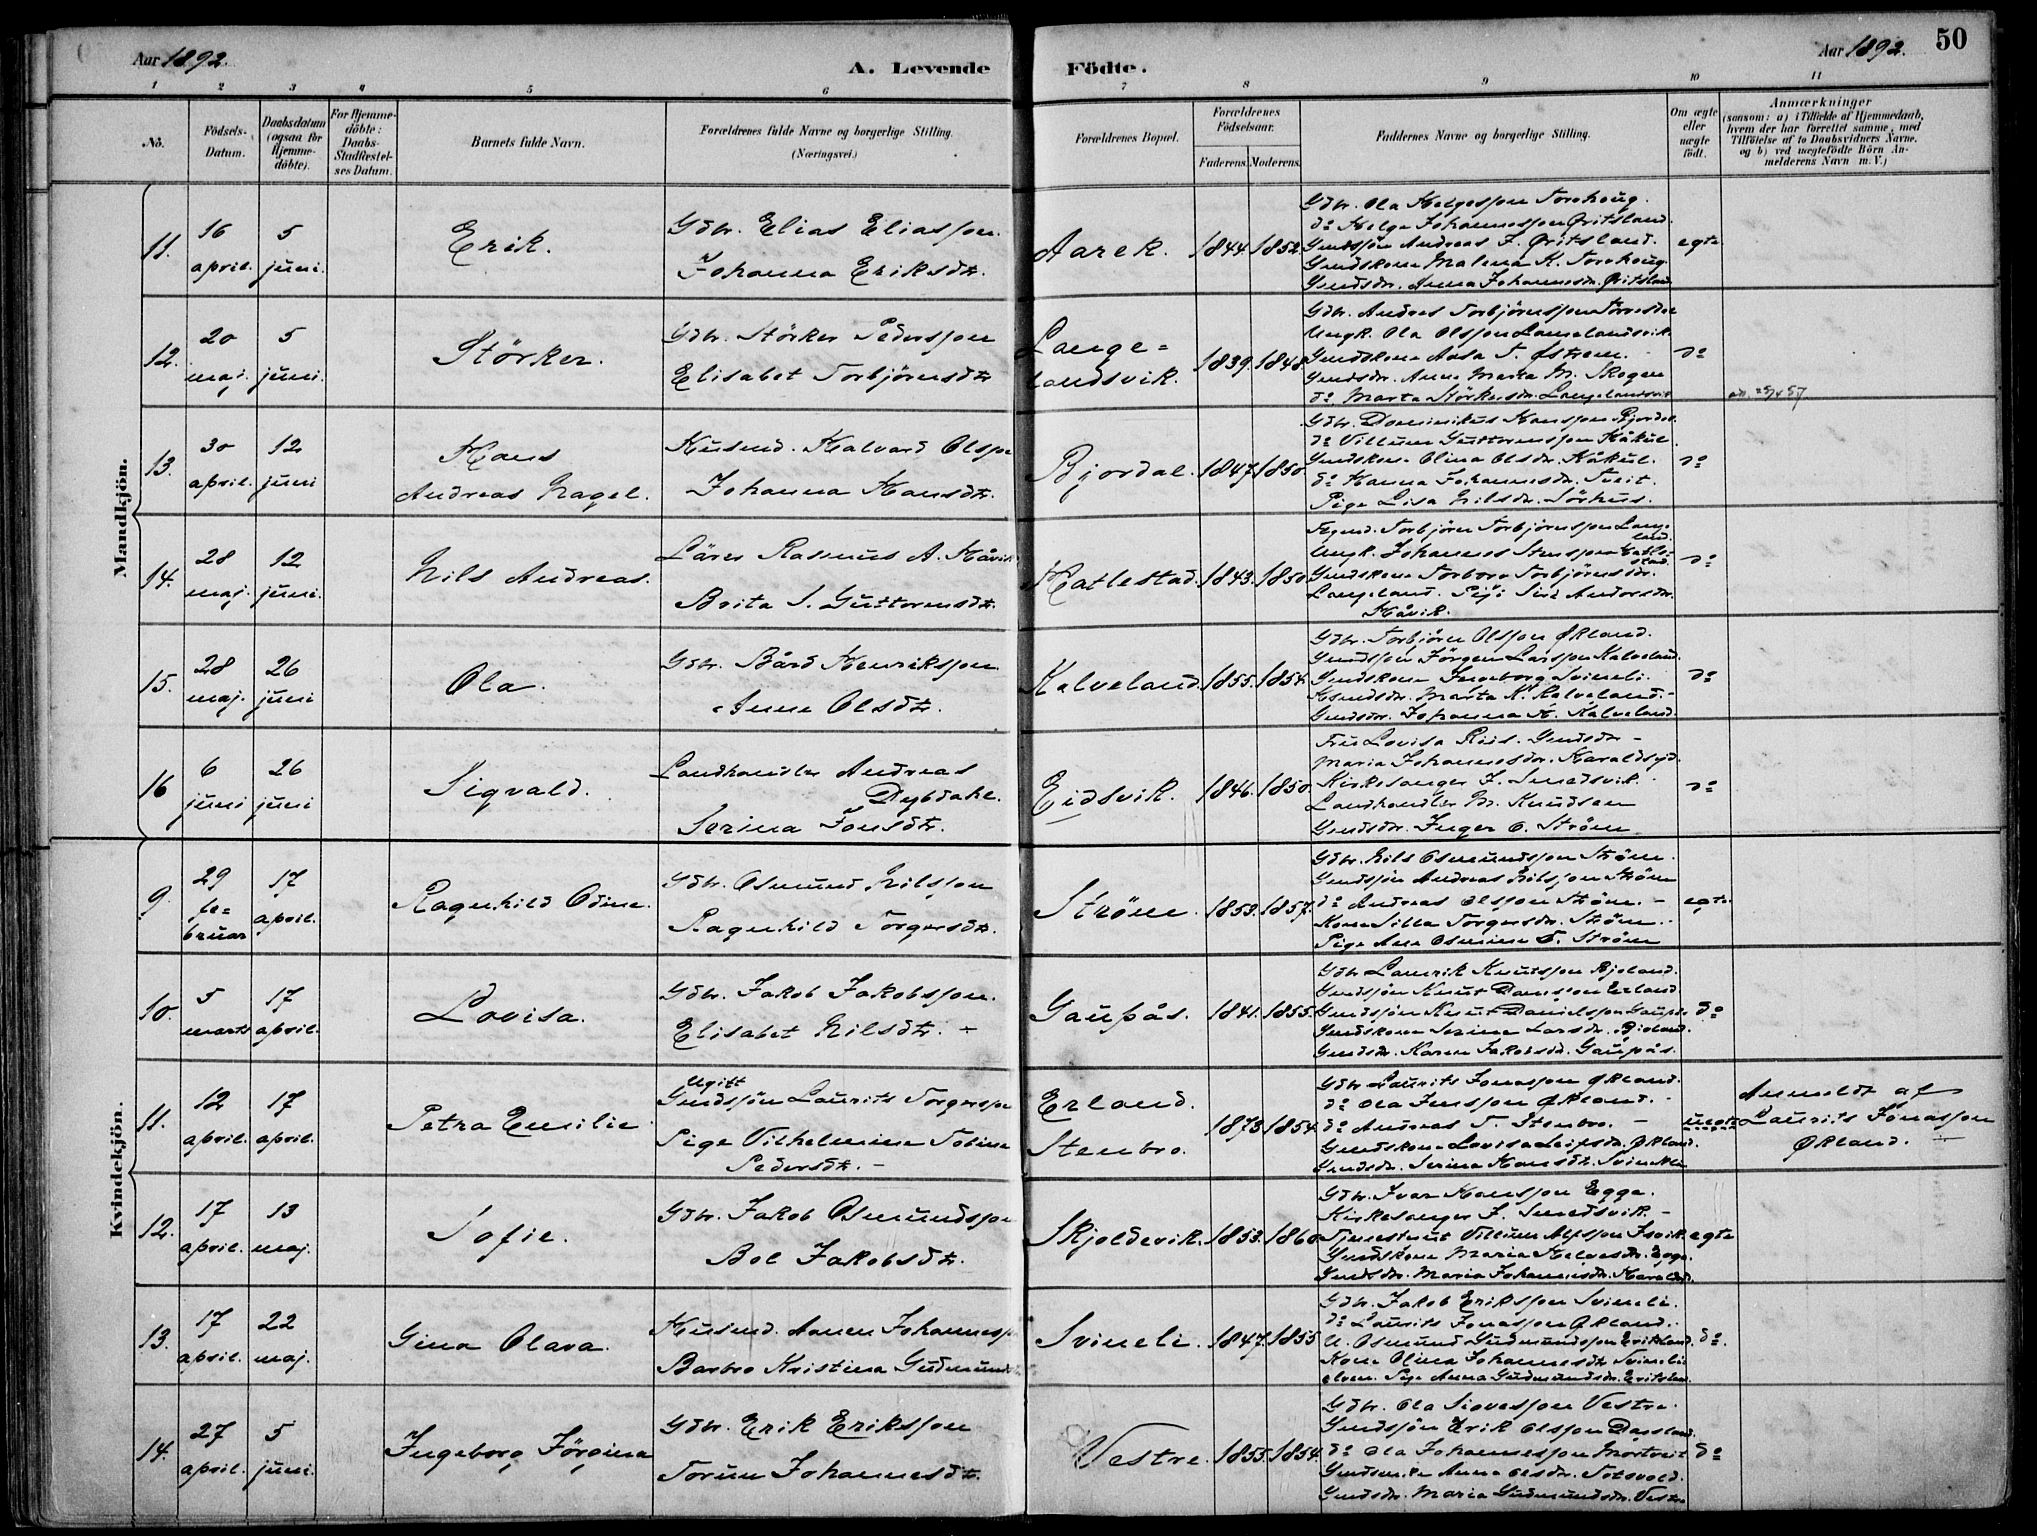 Aar 1892.
A. Levende Födte.
Aar 1892.
50
1 2 3 4 5 6 7 8 9 10 11
No.
Födsels-Datum.
Daabsdatum (ogsaa for Hjemmedöbte).
For Hjemmedöbte: Daabs-Stadfæstelses Datum.
Barnets fulde Navn.
Forældrenes fulde Navne og borgerlige Stilling. (Næringsvei.)
Forældrenes Bopæl.
Forældrenes Födselsaar.
Faderens. Moderens.
Faddernes Navne og borgerlige Stilling.
Om ægte eller uægte födt.
Anmærkninger
(saasom: a) i Tilfælde af Hjemmedaab, hvem der har forrettet samme, med Tilföielse af to Daabsvidners Navne, og b) ved uægtefödte Börn Anmelderens Navn m. V.)
Mandkjön.
11.
16 april.
5 juni.
Erik.
Gdbr. Elias Eliassen.
Johanna Eriksdtr.
Aarek.
1844. 1852.
Gdbr. Ola Helgessen Torehoug.
do Helge Johannessen Øritsland.
Gmdssön Andreas J. Øritsland.
Gmdskone Malena K. Torehoug.
Gmdsdr. Anna Johannesdr. Øritsland
egte
12.
20 maj.
5 juni.
Störker.
Gdbr. Störker Pederssen
Elisabet Torbjörnsdtr
Lange=
landsvik.
1839. 1848
Gdbr. Andres Torbjörnssen
Ungk. Ola Olssen Langelandsvik
Gmdskone Aasa T. Østrem.
Gmdsdr. Anne Marta M. Skogen
do Marta Störkersdr. Langelandsvik
do
13.
30 april.
12 juni
Hans
Andreas Nagel.
Husmd. Halvard Olssen
Johanna Hansdtr.
Bjordal.
1847. 1850.
Gdbr. Dominikus Hanssen Bjordal
do Villum Guttormssen Håkul.
Gmdskone Olina Olsdr. Håkul.
do Hanna Johannesdr. Tveit.
Pige Lisa Nilsdr. Sörhus.
do
14.
28 maj.
12 juni.
Nils Andreas.
Lärer Rasmus A. Håvik
Brita S. Guttormsdtr.
Hatlestad.
1843. 1850
Torbjörn Torbjörnssen Langeland.
Ungk. Johannes Hatlestad.
Gmdskone Torbjörnsdr.
Langeland. Pige Siri Andersdr.
Håvik.
do
15.
28 maj.
26 juni
Ola.
Gdbr. Bård Henrikssen
Anne Olsdtr.
Kalveland.
1855. 1854.
Gdbr. Torbjörn Olssen Økland.
Gmdssön Jörgen Larssen Kalveland.
Gmdskone Ingeborg Svineli.
Marta K. Kalveland.
Gmdsdr. Johanna H. Kalveland.
do
16
6 juni
26 juni
Sigvald.
Landhandler Andreas
Dybdahl.
Serina Jonsdtr.
Eidsvik.
1846. 1850.
Fru Lovisa Riis. Gmdsdr
Maria Johannesdr. Haraldseid.
Kirkesanger J. Smedsvik.
Landhandler M. Knudsen
Gmdsdr. Inger O. Ström
do
Kvindekjön.
9.
29 fe=
bruar
17 april.
Ragnhild Odine.
Gdbr. Osmund Nilssen
Ragnhild Torgersdtr.
Ström.
1853. 1857.
Gdbr. Nils Osmundssen Ström.
Gmdssön Andreas Nilssen Ström
do Andreas Olssen Ström.
Kone Silla Torgersdr. Ström.
Pige Ane Osmine T. Ström
egte
10.
5 marts
17 april.
Lovisa.
Gdbr. Jakob Jakobssen.
Elisabet Nilsdtr.
Gaupås.
1841. 1855.
Gdbr Lauerik Knutssen Bjoland.
Gmdssön Knut Danielssen Erland
Gmdssön Knut Danielssen Gaupås
Gmdskone Serina Larsdr. Bjoland.
Gmdsdr. Karen Jakobsdr. Gaupås.
do
11.
12 april.
17 april.
Petra Emilie
Ugift
Gmdssön Laurits Torgerssen
Pige Vilhelmine Tobine
Pedersdtr.
Erland.
Stenbro.
1873. 1854.
Gdbr Laurits Jonassen Økland.
do Ola Jenssen Økland.
do Andreas T. Stenbro.
Gmdskone Lovisa Leifsdr. Økland.
Gmdsdr. Serina Hansdtr. Svineli
uegte
Anmeldt af
Laurits Jonassen
Økland.
12.
17 april.
13 maj.
Sofie.
Gdbr. Jakob Osmundssen
Bol Jakobsdtr.
Skjoldevik.
1853. 1860
Gdbr. Ivar Hanssen Egge.
Kirkesanger J. Smedsvik.
Tjenestegut Villum Alfssen Isvik
Gmdskone Maria Helgesdr. Egge.
Gmdsdr. Maria Johannesdr. Haraldseid.
egte
13.
17 april.
22 maj.
Gina Olava.
Husmd. Aanen Johannessen
Barbro Kristina Gudmunds
Svineli.
1847. 1855
Gdbr. Jakob Erikssen Svineli.
do Laurits Jonassen Økland.
U. Osmund Gudmundssen Eritsland.
Kone Olina Johannesdtr Svineli
elven. Pige Anna Gudmundsdr. Eritsland.
do.
14.
27 april.
5 juni.
Ingeborg Jörgina
Gdbr. Erik Erikssen
Torun Johannesdtr.
Vestre.
1855. 1854.
Gdbr. Ola Vestre.
Gmdssön Erik Olssen Dassland.
do Ola Johannessen Mortveit
Anna Olsdr. Totsvold.
Gmdsdr. Maria Gudmundsdr. Vestre
do